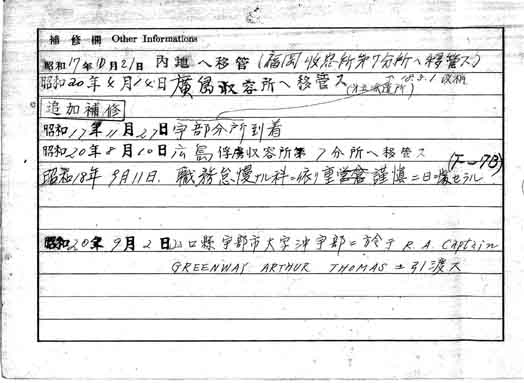 補修欄 Other Informations
昭和17年10月21日 内地へ移管(福岡收容所第7分所へ移管ス)
昭和20年4月14日 廣島収容所へ移管ス
追加補修
昭和17年11月27日 宇部分所到着
昭和20年8月10日 広島俘虜収容所第7分所へ移管ス
昭和18年9月11日. 職務怠慢ナル科ニ依リ重営倉謹慎二日
昭和20年9月2日 山口縣宇部市大字沖宇部ニ於テ R.A Captain
GREENWAY ARTHUR THOMAS ニ引渡ス